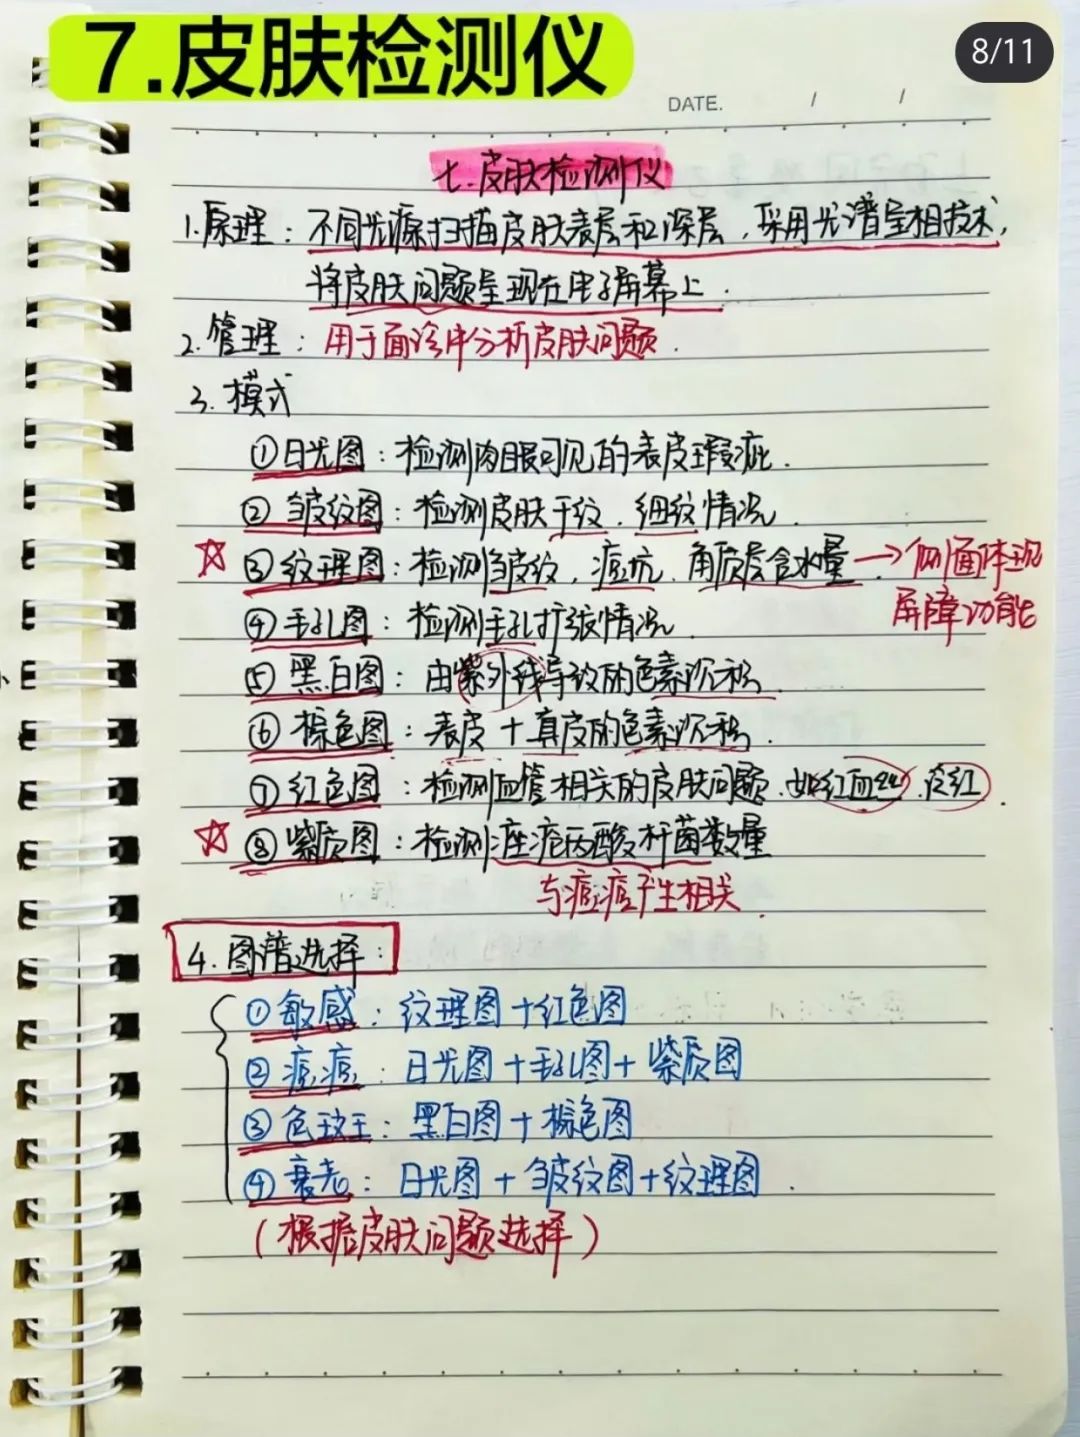 7.皮肤检测仪
8/11
DATE. / /
七.皮肤检测仪
1.原理：不同光源扫描皮肤表层和深层，采用光谱呈相技术，
将皮肤问题呈现在电子屏幕上.
2.管理：用于面诊中分析皮肤问题.
3.模式
①日光图：检测肉眼可见的表皮瑕疵.
②皱纹图：检测皮肤干纹、细纹情况.
☆③纹理图：检测皱纹、痘坑、角质层含水量→侧面体现
屏障功能
④毛孔图：检测毛孔扩张情况.
⑤黑白图：由紫外线导致的色素沉积.
⑥棕色图：表皮+真皮的色素沉积.
⑦红色图：检测血管相关的皮肤问题.如红血丝、泛红.
☆⑧紫质图：检测痤疮丙酸杆菌数量
与痘痘产生相关.
4.图谱选择：
①敏感：纹理图+红色图
②痘痘：日光图+毛孔图+紫质图
③色斑：黑白图+棕色图
④衰老：日光图+皱纹图+纹理图.
（根据皮肤问题选择）